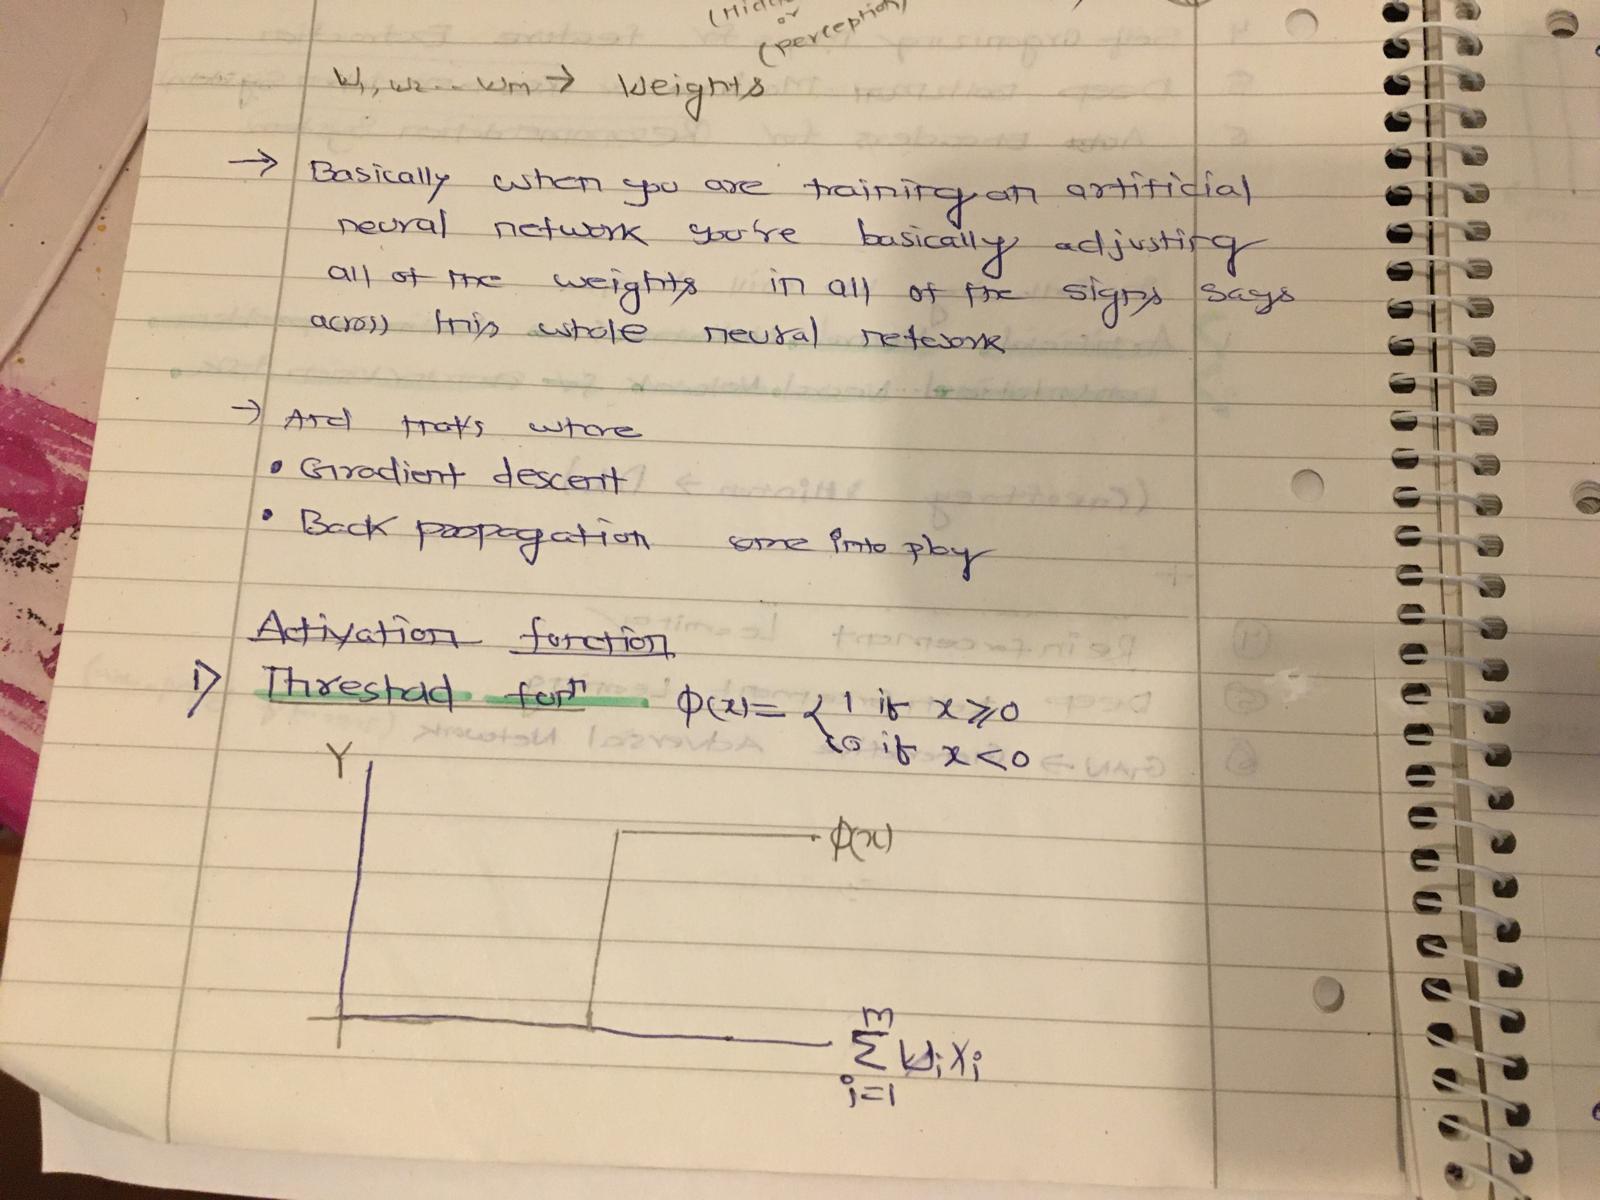 or
(perception)
W1, W2... Wm → Weights
→ Basically when you are training an artificial
neural network you're basically adjusting
all of the weights in all of the signs says
across this whole neural network
→ And that's where
• Gradient descent
• Back propagation come into play
Activation function
1) Threshad forn ϕ(x)= { 1 if x⩾0
0 if x<0
Y
ϕ(x)
m
Σ WiXi
i=1